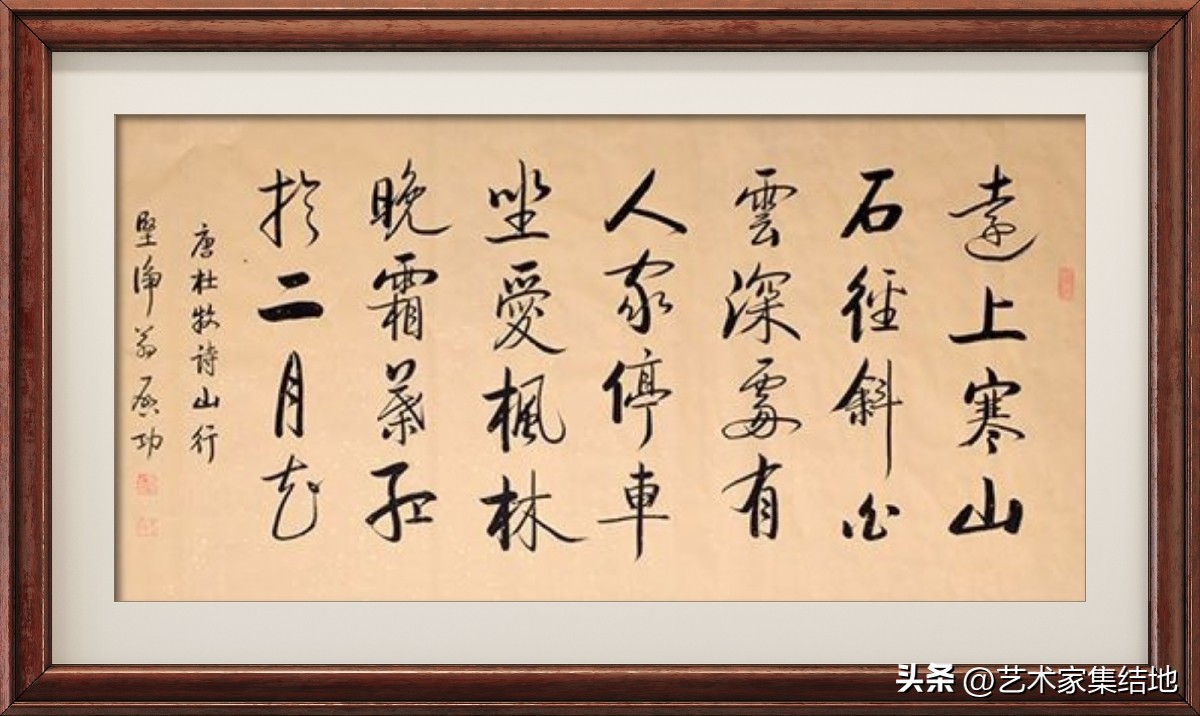 遠上寒山
石徑斜白
雲深處有
人家停車
坐愛楓林
晚霜葉紅
於二月花
唐杜牧詩山行
堅淨翁啟功
头条 @艺术家集结地